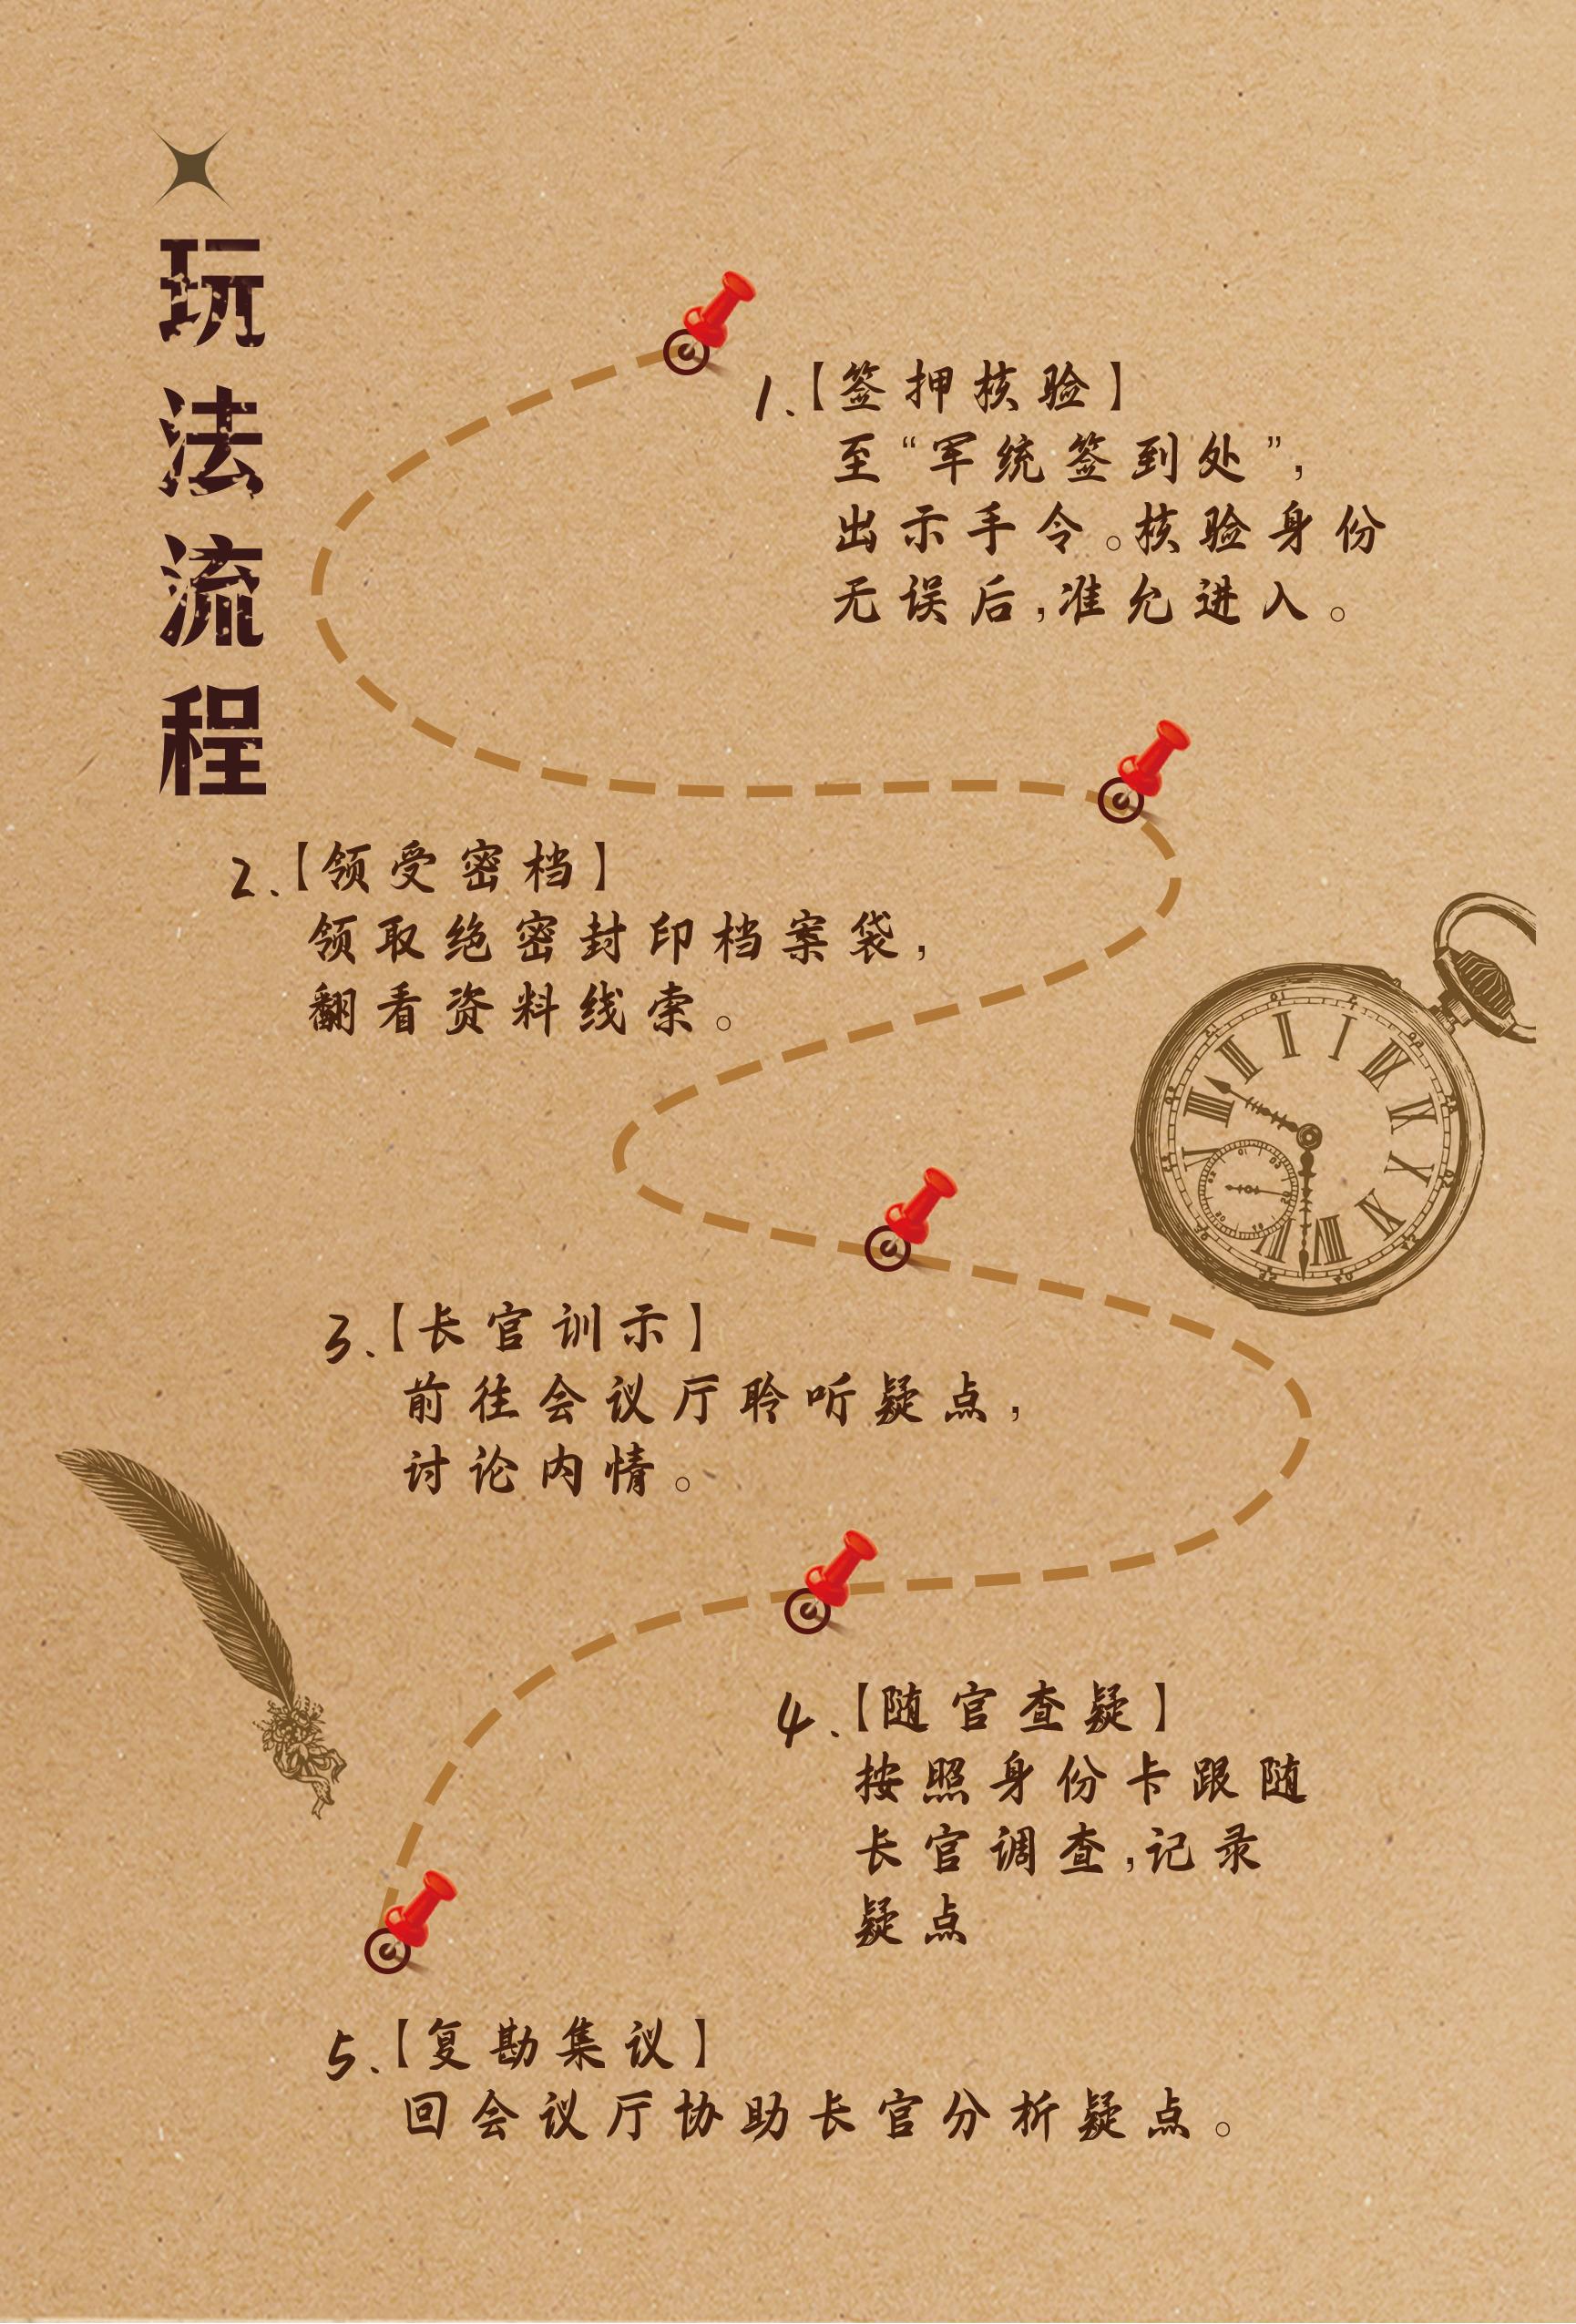 玩法流程
1.【签押核验】
至“军统签到处”,
出示手令。核验身份
无误后,准允进入。
2.【领受密档】
领取绝密封印档案袋,
翻看资料线索。
3.【长官训示】
前往会议厅聆听疑点,
讨论内情。
4.【随官查疑】
按照身份卡跟随
长官调查,记录
疑点
5.【复勘集议】
回会议厅协助长官分析疑点。